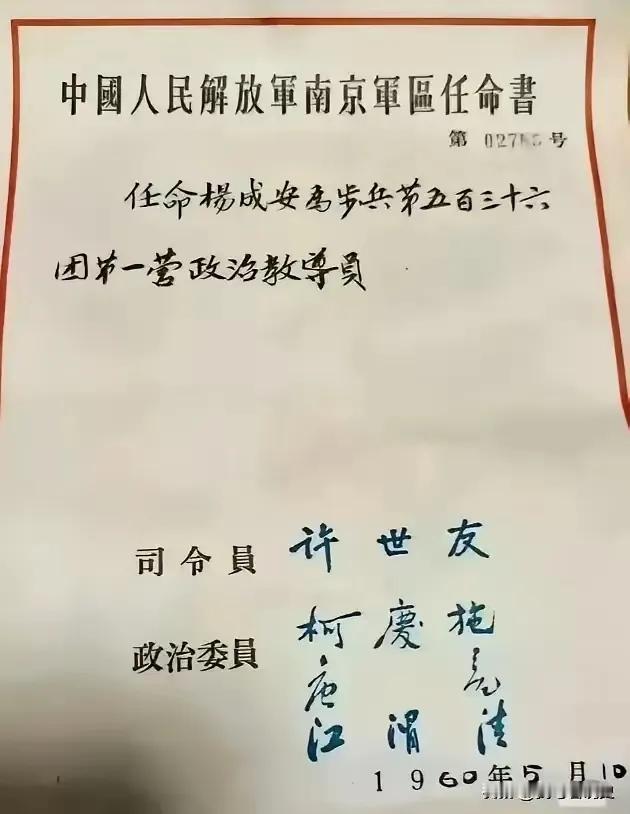 中國人民解放軍南京軍區任命書
第 027 号
任命楊成安為步兵第五百三十六
团第一营政治教导員
司令員 许世友
政治委員 柯慶施
唐亮
江渭清
1960年5月10